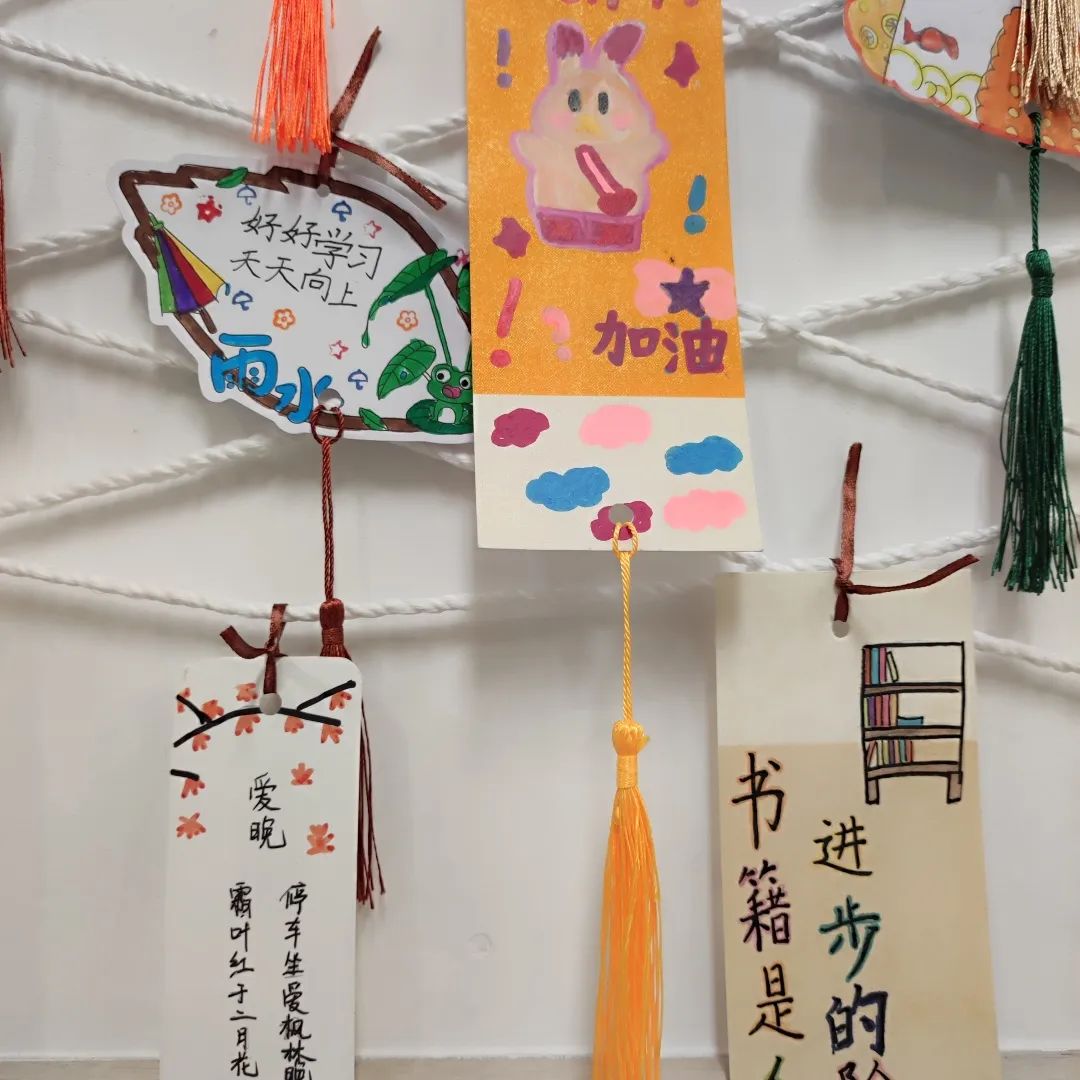 好好学习
天天向上
雨水
加油
爱晚
停车坐爱枫林晚
霜叶红于二月花
书籍是
进步的